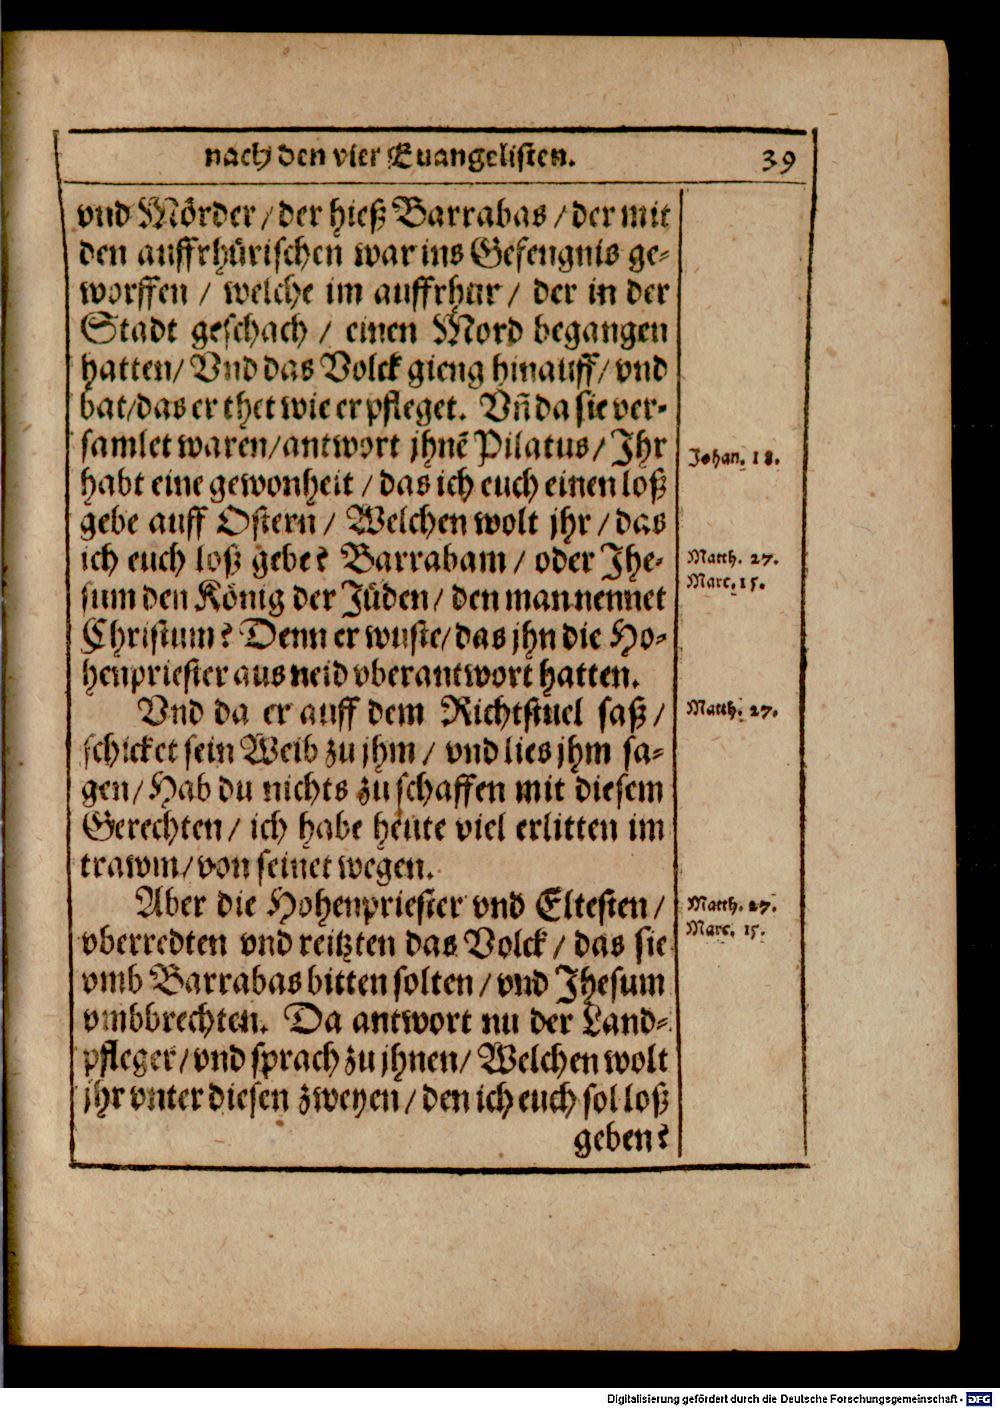 nach den vier Euangelisten. 39
vnd Mörder / der hieß Barrabas / der mit
den auffrhürischen war ins Gefengnis ge-
worffen / welche im auffrhur / der in der
Stadt geschach / einen Mord begangen
hatten / Vnd das Volck gieng hinauff / vnd
bat / das er thet wie er pfleget. Vñ da sie ver-
samlet waren / antwort jhnẽ Pilatus / Ihr
Johan. 18.
habt eine gewonheit / das ich euch einen loß
gebe auff Ostern / Welchen wolt jhr / das
ich euch loß gebe? Barrabam / oder Ihe-
Matth. 27.
Marc. 15.
sum den König der Jüden / den man nennet
Christum? Denn er wuste / das jhn die Ho-
henpriester aus neid vberantwort hatten.
Vnd da er auff dem Richtstuel saß /
Matth. 27.
schicket sein Weib zu jhm / vnd lies jhm sa-
gen / Hab du nichts zu schaffen mit diesem
Gerechten / ich habe heute viel erlitten im
trawm / von seinet wegen.
Aber die Hohenpriester vnd Eltesten /
Matth. 27.
Marc. 15.
vberredten vnd reitzten das Volck / das sie
vmb Barrabas bitten solten / vnd Ihesum
vmbbrechten. Da antwort nu der Land-
pfleger / vnd sprach zu jhnen / Welchen wolt
jhr vnter diesen zweyen / den ich euch sol loß
geben?
Digitalisierung gefördert durch die Deutsche Forschungsgemeinschaft - DFG